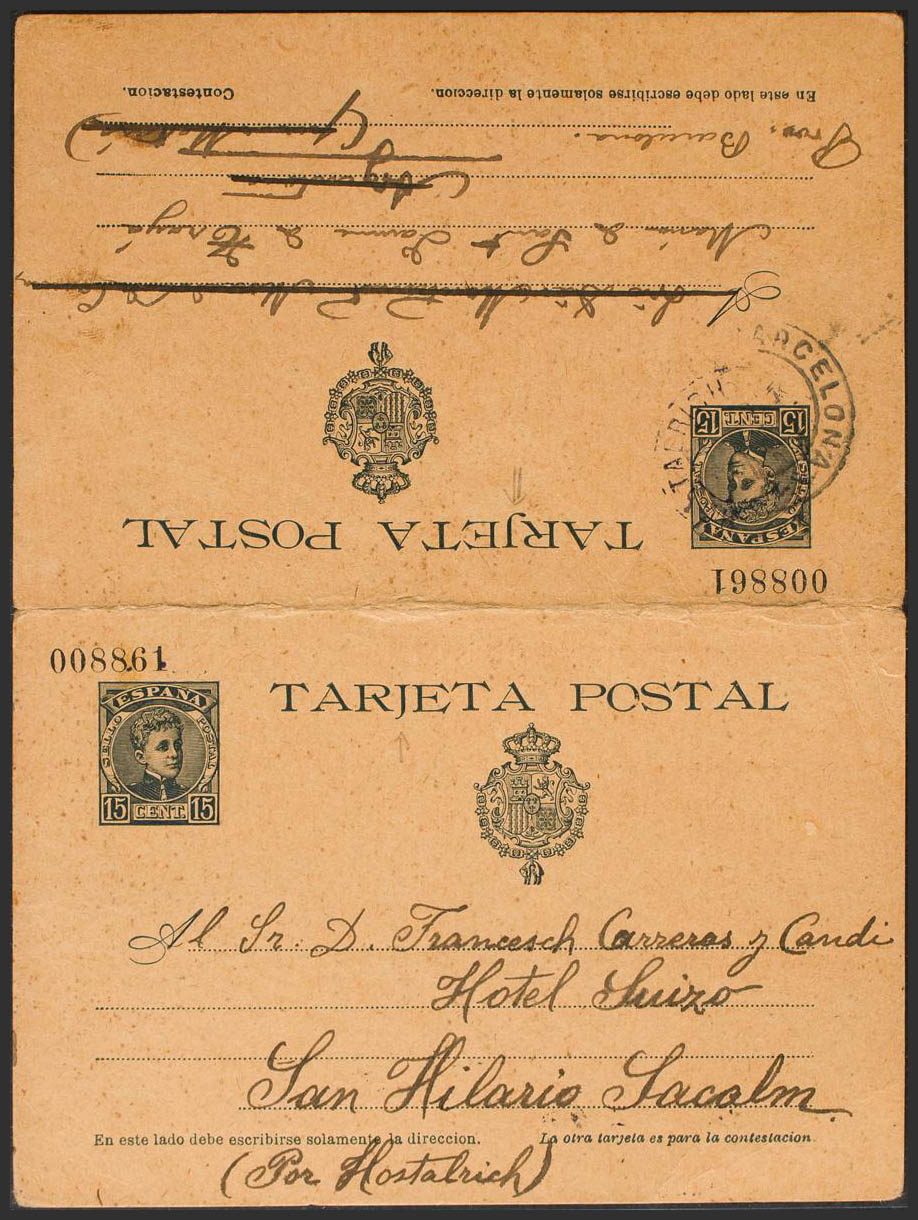 008861
ESPAÑA
SELLO POSTAL
15 CENT. 15
TARJETA POSTAL
Al Sr. D. Francesch Carreras y Candi
Hotel Suizo
San Hilario Sacalm
En este lado debe escribirse solamente la direccion.
La otra tarjeta es para la contestacion.
(Por Hostalrich)
008861
ESPAÑA
15 CENT. 15
TARJETA POSTAL
BARCELONA
A
María de Sant Jaume de
Prov. Barcelona.
En este lado debe escribirse solamente la direccion.
Contestacion.